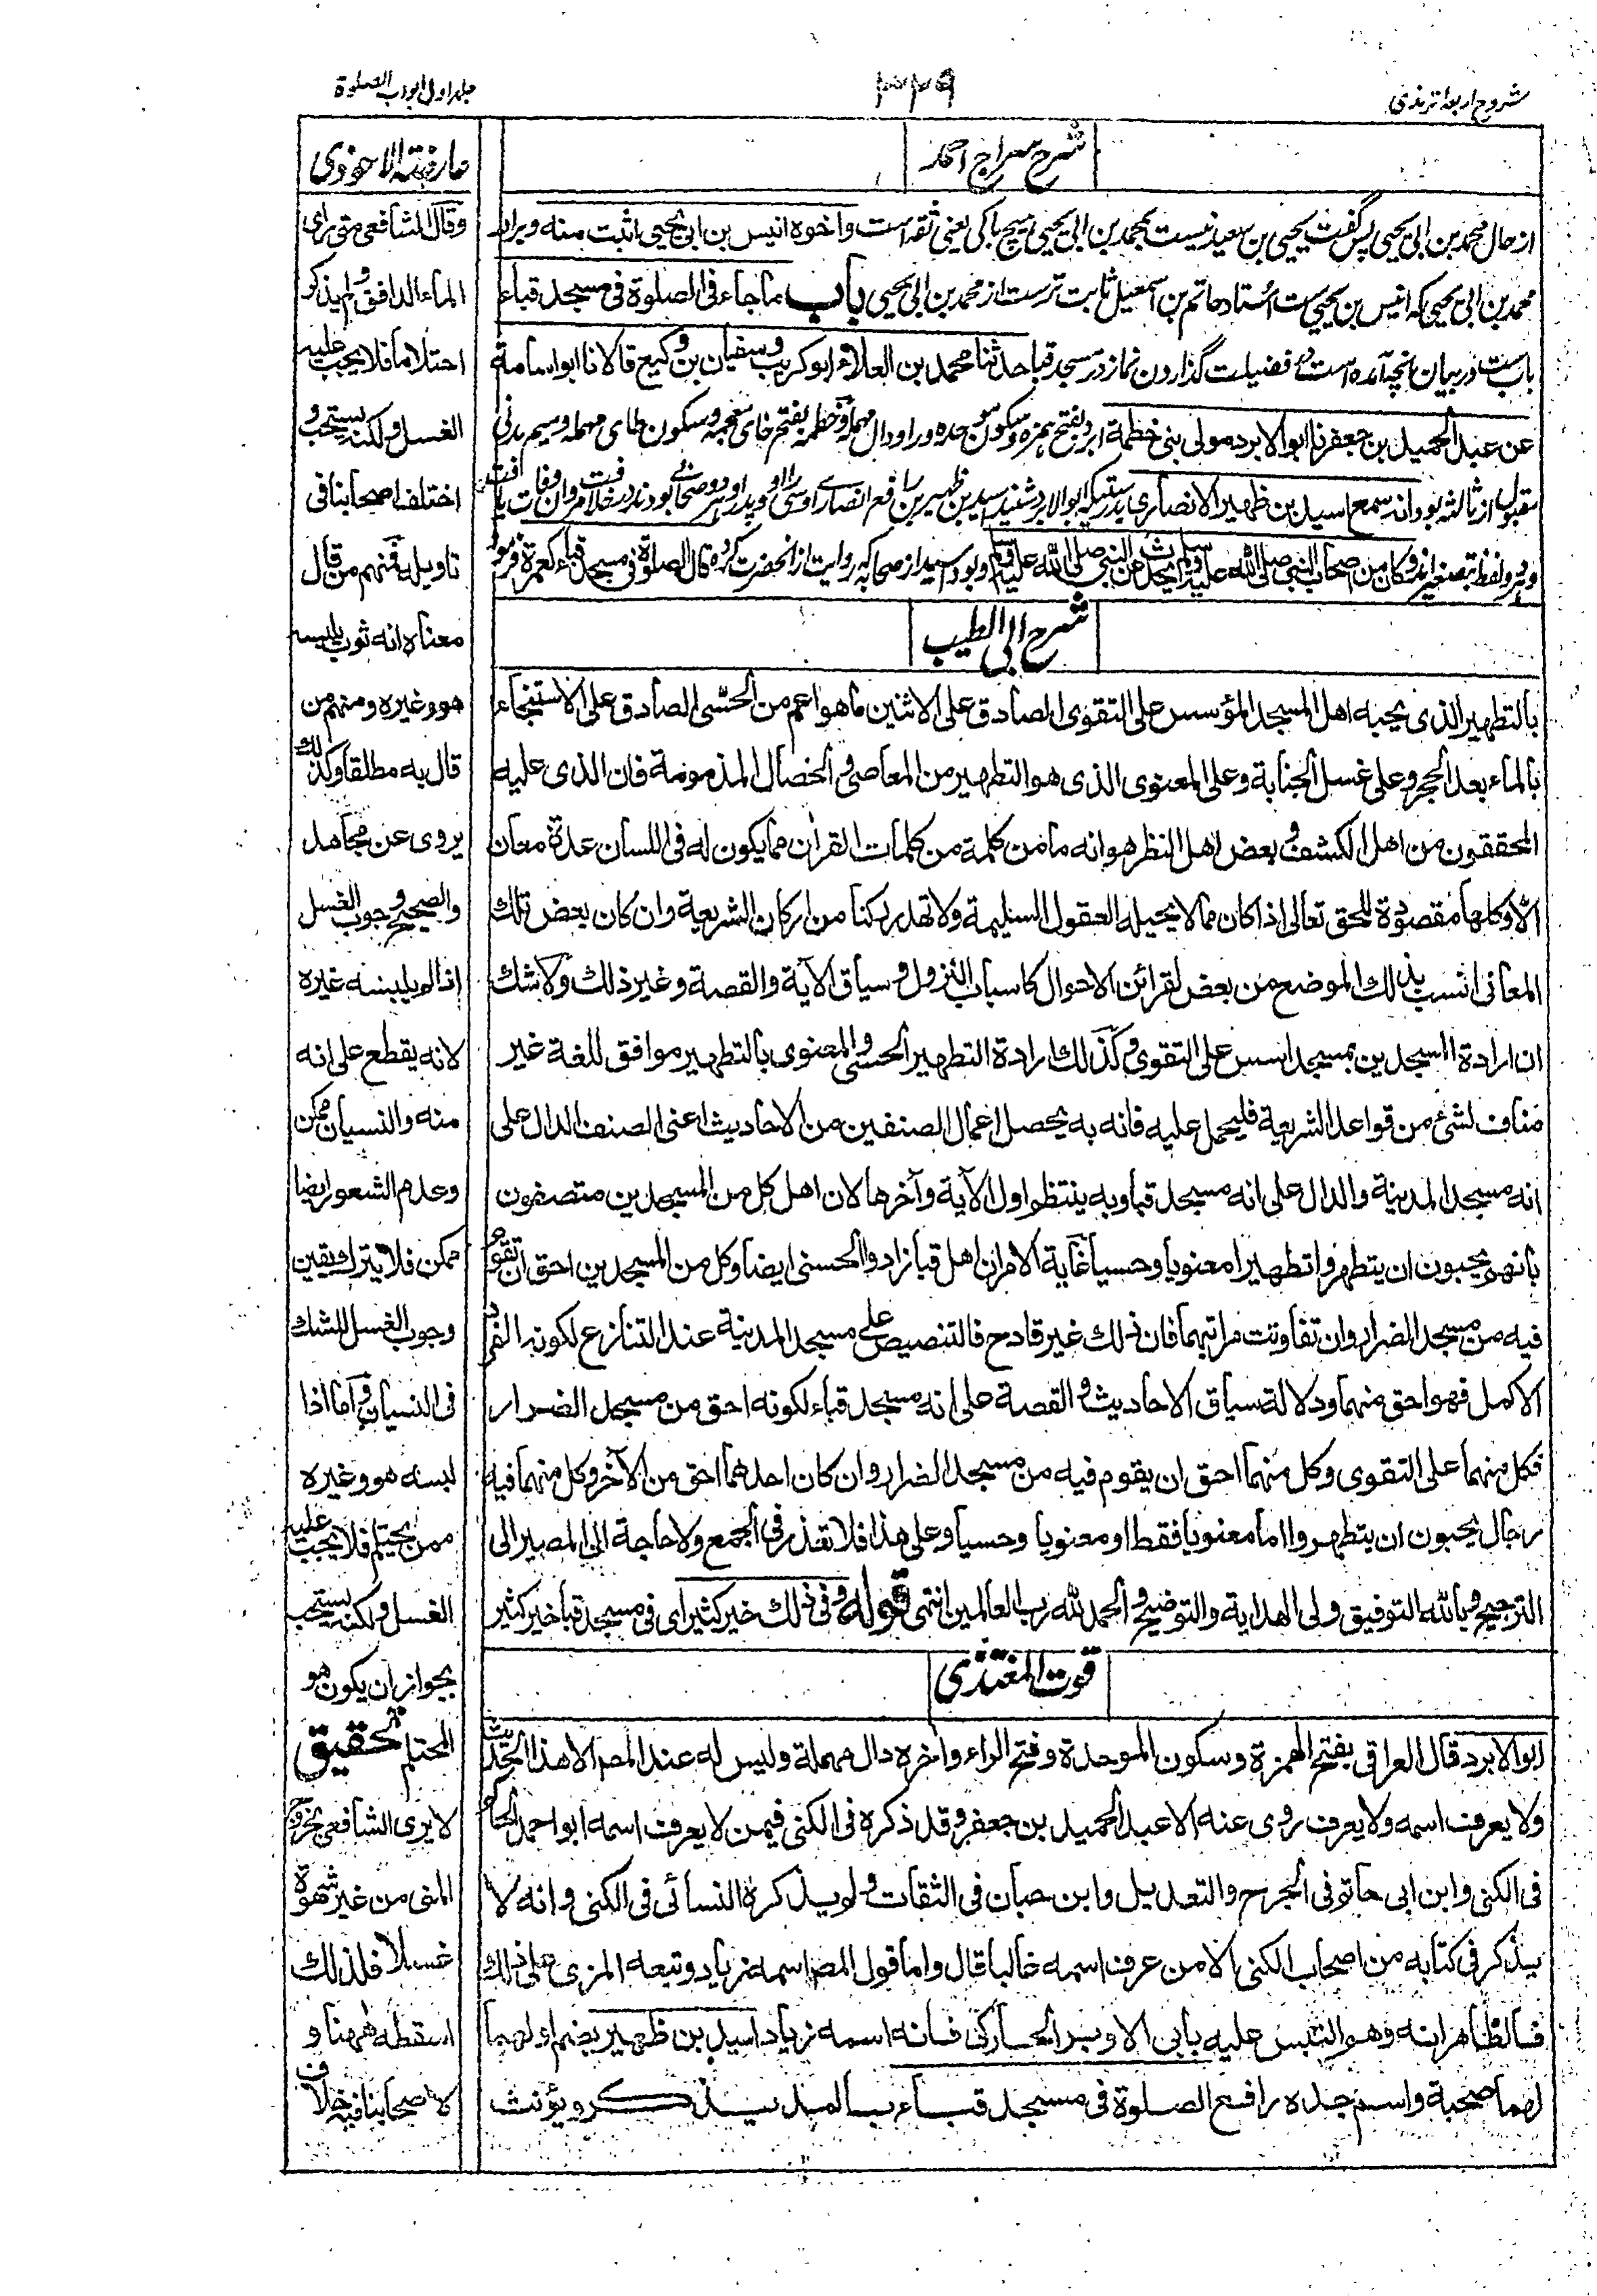 شروح اربعه ترمذی
۳۳۹
جلد اول ابواب الصلوة
شرح سراج احمد
از حال محمد بن ابی یحیی پس گفت یحیی بن سعید نیست بمحمد بن ابی یحیی هیچ باکی یعنی ثقه است واخوه انیس بن ابی یحیی اثبت منه و برادر
محمد بن ابی یحیی که انیس بن یحیی ست استاد حاتم بن اسمعیل ثابت ترست از محمد بن ابی یحیی باب ما جاء فی الصلوة فی مسجد قباء
باب ست در بیان آنچه آمده است در فضیلت گذاردن نماز در مسجد قبا حدثنا محمد بن العلاء ابو کریب وسفیان بن وکیع قالا نا ابو اسامة
عن عبد الحمید بن جعفر نا ابو الابرد مولی بنی خطمة ابرد بفتح همزه وسکون موحده ورا ودال مهمله وخطمه بفتح خای معجمه وسکون طای مهمله ومیم مدنی
مقبول از ثالثه بود انه سمع اسید بن ظهیر الانصاری بدرستیکه ابو الابرد شنید اسید بن ظهیر بن رافع انصاری اوسی را و وپدر او هر دو صحابی بودند در خلافت مروان وفات یافت
وهر دو لفظ بتصغیر اند وکان من اصحاب النبی صلی الله علیه وسلم یحدث عن النبی صلی الله علیه وسلم وبود اسید از صحابه که روایت از آنحضرت کرده قال الصلوة فی مسجد قباء کعمرة فرمود
شرح ابی الطیب
بالتطهیر الذی یحبه اهل المسجد المؤسس علی التقوی الصادق علی الاثنین ما هو اعم من الحسی الصادق علی الاستنجاء
بالماء بعد الحجر وعلی غسل الجنابة وعلی المعنوی الذی هو التطهیر من المعاصی والخصال المذمومة فان الذی علیه
المحققون من اهل الکشف وبعض اهل النظر هو انه ما من کلمة من کلمات القران مما یکون له فی اللسان عدة معان
الا وکلها مقصودة للحق تعالی اذا کان مما لا یحیله العقول السلیمة ولا تهدر رکنا من ارکان الشریعة وان کان بعض تلک
المعانی انسب بذلک الموضع من بعض لقرائن الاحوال کاسباب النزول وسیاق الآیة والقصة وغیر ذلک ولا شک
ان ارادة المسجدین بمسجد اسس علی التقوی وکذلک ارادة التطهیر الحسی والمعنوی بالتطهیر موافق للغة غیر
مناف لشئ من قواعد الشریعة فلیحمل علیه فانه به یحصل اعمال الصنفین من الاحادیث اعنی الصنف الدال علی
انه مسجد المدینة والدال علی انه مسجد قبا وبه ینتظم اول الآیة وآخرها لان اهل کل من المسجدین متصفون
بانهم یحبون ان یتطهروا تطهیرا معنویا وحسیا غایة الامر ان اهل قبا زادوا الحسی ایضا وکل من المسجدین احق ان تقوم
فیه من مسجد الضرار وان تفاوتت مراتبهما فان ذلک غیر قادح فالتنصیص علی مسجد المدینة عند التنازع لکونه الفرد
الاکمل فهو احق منهما ودلالة سیاق الاحادیث والقصة علی انه مسجد قباء لکونه احق من مسجد الضرار
فکل منهما علی التقوی وکل منهما احق ان یقوم فیه من مسجد الضرار وان کان احدهما احق من الآخر وکل منهما فیه
رجال یحبون ان یتطهروا اما معنویا فقط او معنویا وحسیا وعلی هذا فلا تعذر فی الجمع ولا حاجة الی المصیر الی
الترجیح وبالله التوفیق ولی الهدایة والتوضیح والحمد لله رب العالمین انتهی قوله وفی ذلک خیر کثیر ای فی مسجد قبا خیر کثیر
قوت المغتذی
ابو الابرد قال العراقی بفتح الهمزة وسکون الموحدة وفتح الراء واخره دال مهملة ولیس له عند المص الا هذا الحدیث
ولا یعرف اسمه ولا یعرف روی عنه الا عبد الحمید بن جعفر وقد ذکره فی الکنی فیمن لا یعرف اسمه ابو احمد الحاکم
فی الکنی وابن ابی حاتم فی الجرح والتعدیل وابن حبان فی الثقات ولم یذکره النسائی فی الکنی وانه لا
یذکر فی کتابه من اصحاب الکنی الا من عرف اسمه غالبا قال واما قول المص اسمه زیاد وتبعه المزی علی ذلک
فالظاهر انه وهم التبس علیه بابی الاوبر الحارثی فانه اسمه زیاد اسید بن ظهیر بضم اولهما
لهما صحبة واسم جده رافع الصلوة فی مسجد قباء بالمد یذکر ویؤنث
عارضة الاحوذی
وقال الشافعی متی رای
الماء الدافق ولم یذکر
احتلاما فلا یجب علیه
الغسل ولکنه یستحب و
اختلف اصحابنا فی
تاویله فمنهم من قال
معناه انه ثوب یلبسه
هو وغیره ومنهم من
قال به مطلقا وکذلک
یروی عن مجاهد
والصحیح وجوب الغسل
اذا لم یلبسه غیره
لانه یقطع علی انه
منه والنسیان ممکن
وعدم الشعور ایضا
ممکن فلا یترک یقین
وجوب الغسل للشک
فی النسیان واما اذا
لبسه هو وغیره
ممن یحتلم فلا یجب علیه
الغسل ولکنه یستحب
بجواز ان یکون هو
المحتلم تحقیق
لا یری الشافعی بخروج
المنی من غیر شهوة
غسلا فلذلک
اسقطه ههنا و
لاصحابنا فیه خلاف